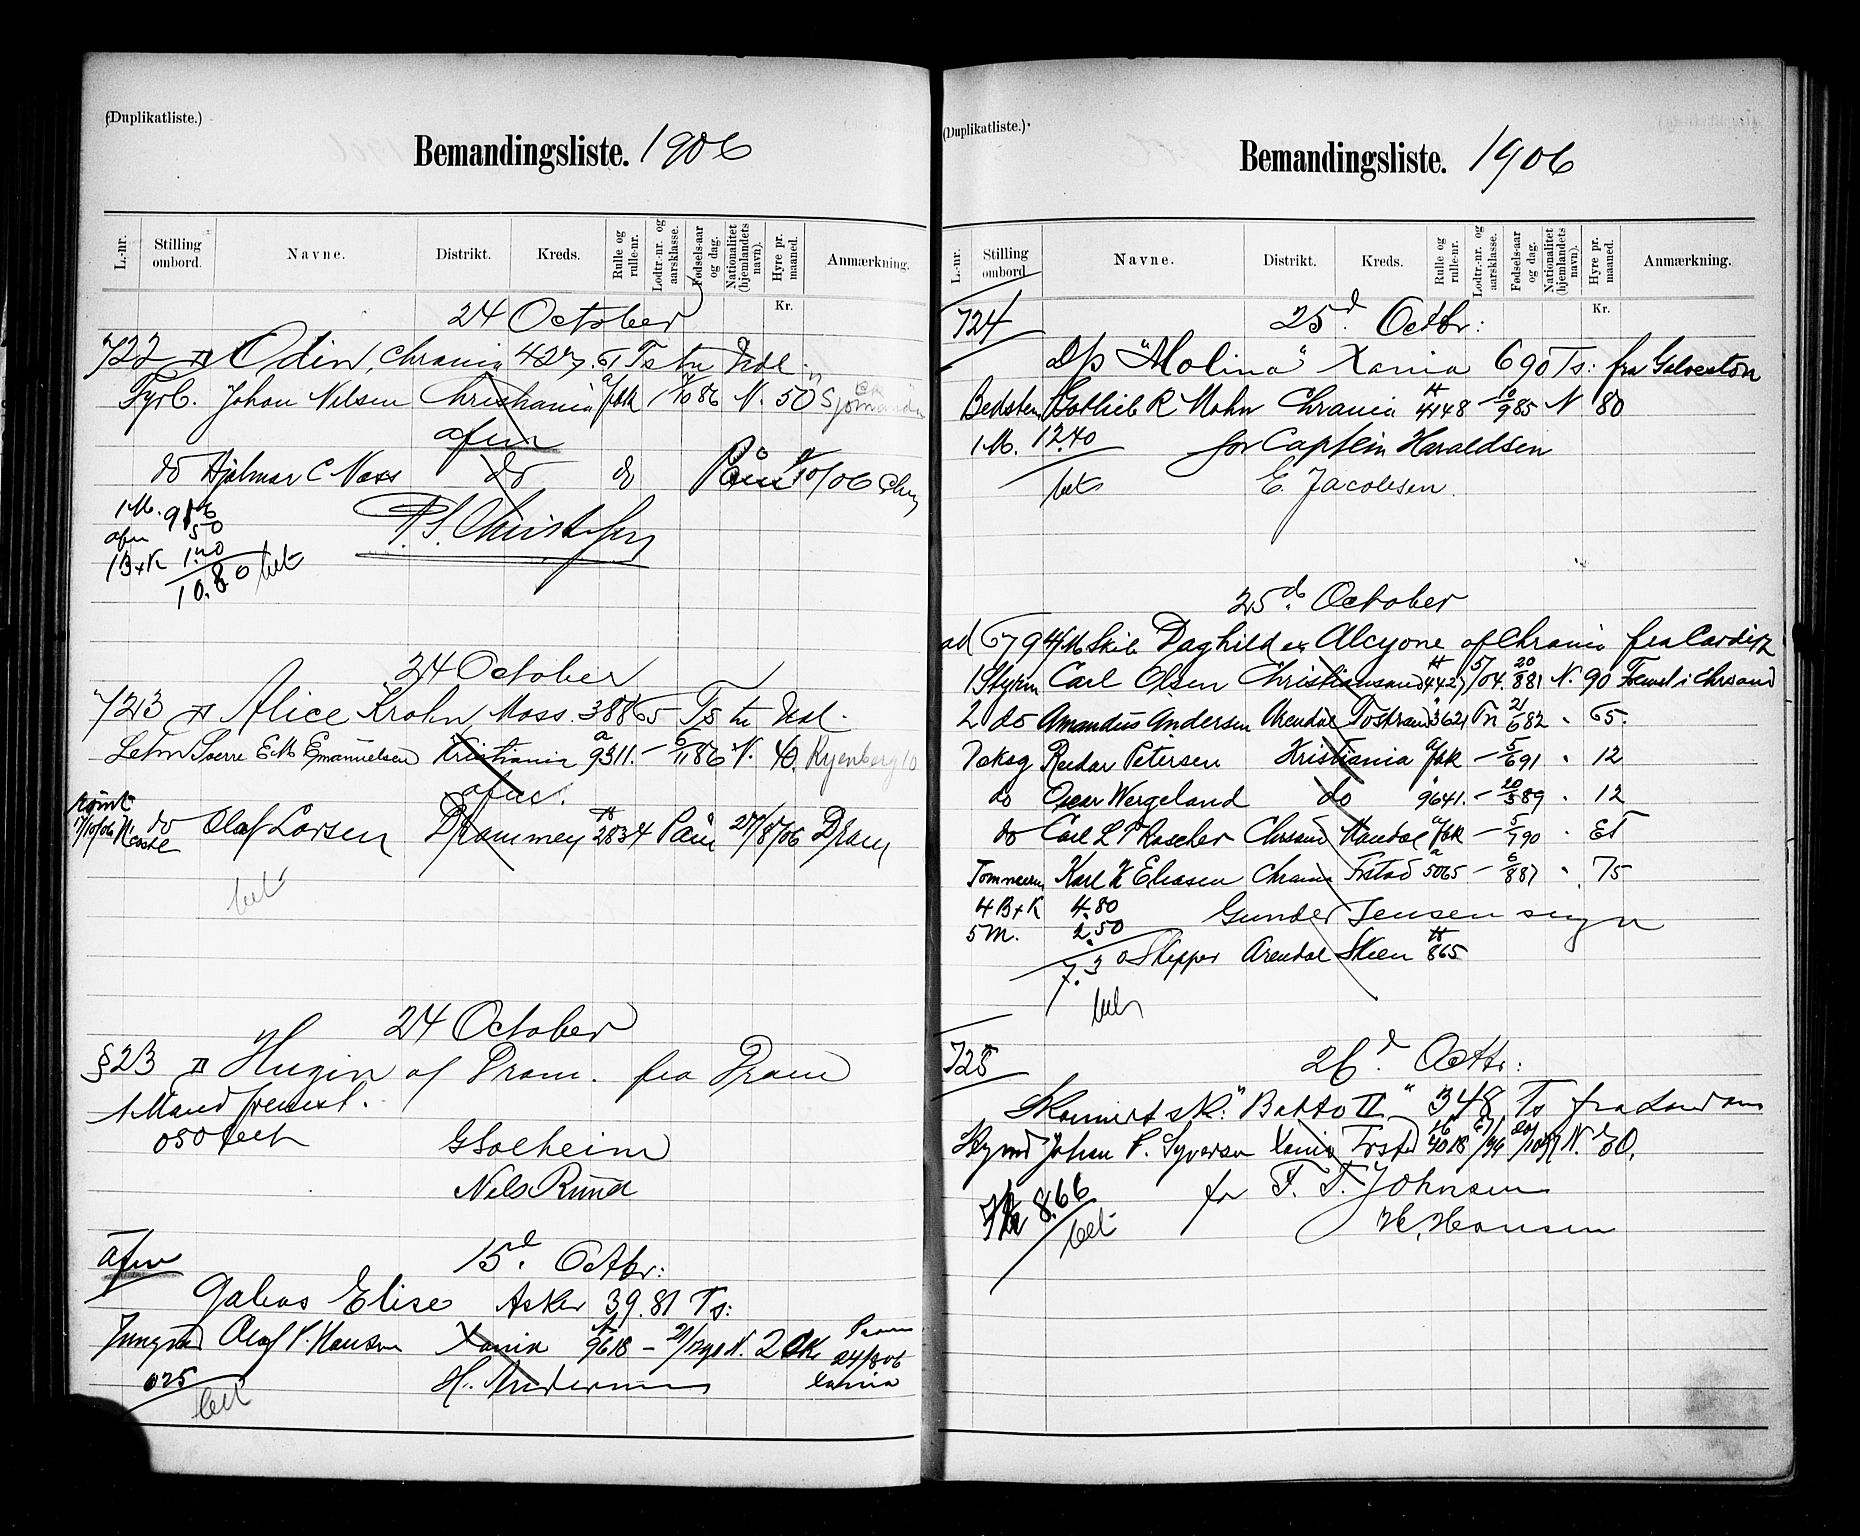 (Duplikatliste.)
Bemandingsliste. 1906
L.-nr. Stilling ombord. Navne. Distrikt. Kreds. Rulle og rulle-nr. Lodtr-nr. og aarsklasse. Fødsels-aar og dag. Nationalitet (hjemlandets navn). Hyre pr. maaned. Anmærkning.
Kr.
24 October
722 Odin, Chrania 427.61 Ts tu Udl.
Fyrb. Johan Nilsen Christiania N. 50
afm
do Hjalmar C Næss do do 10/06
1 M.
afm 50
1 B+K 1.40
10.80 bet
24 October
723 Alice Krohn Moss. 3886 Ts tu Udl.
Letm Sverre E M Emanuelsen Kristiania 9311. – 86 N. 40.
afm.
Rømt 17/10/06 do Olaf Larsen Drammen 2834 Paam 27/8/06 Dram
bet
24 October
§23 Hugin af Dram. fra Dram
1 Mand fremst.
050 bet
G Solheim
Nils Rund
Afm 15d. Octbr:
Galeas Elise Asker 39.81 Ts:
Jungmd Olaf P. Hansen Xania 9618 – N. 20 K. Paam 24/8 06 Xania
025 H. Andersen
bet
(Duplikatliste.)
Bemandingsliste. 1906
L.-nr. Stilling ombord. Navne. Distrikt. Kreds. Rulle og rulle-nr. Lodtr-nr. og aarsklasse. Fødsels-aar og dag. Nationalitet (hjemlandets navn). Hyre pr. maaned. Anmærkning.
Kr.
724 25d. Octbr:
D/s "Molina" Xania 690 Ts: fra Galveston
Bedstem Gotlieb R Mohn Chrania 4148 – 10/9 85 N 80
1 M. 12.40 for Captein Haraldsen
bet E. Jacobsen.
25d. October
ad 679 4/M Skib Daghild ex Alcyone af Chrania fra Cardiff
1 Styrm Carl Olsen Christiansand 4427 5/04. 20/8 81 N. 90 Fremst i Chrsand
2 do Amandus Andersen Arendal Tostrand 3621 21/6 82 " 65.
Deksg Reidar Petersen Kristiania – 5/6 91 " 12
do Oscar Wergeland do 9641. – 20/5 89 " 12
do Carl L P Roscher Chrsand Mandal – 5/7 90 "
Tømmerm Karl K Eliasen Chrania Frstad 5065 – 6/8 87 " 75
4 B+K 4.80 Gunder Jensen
5 M. 2.50
7.30 Skipper Arendal Skien 865
bet
725 26d. Octbr:
Skonnert sk. "Batto II" 348 Ts fra London
Styrmd Johan P. Syversen Xania Frstd 4018 N. 80.
8.66 for T. T. Johnsen
bet H. Hansen